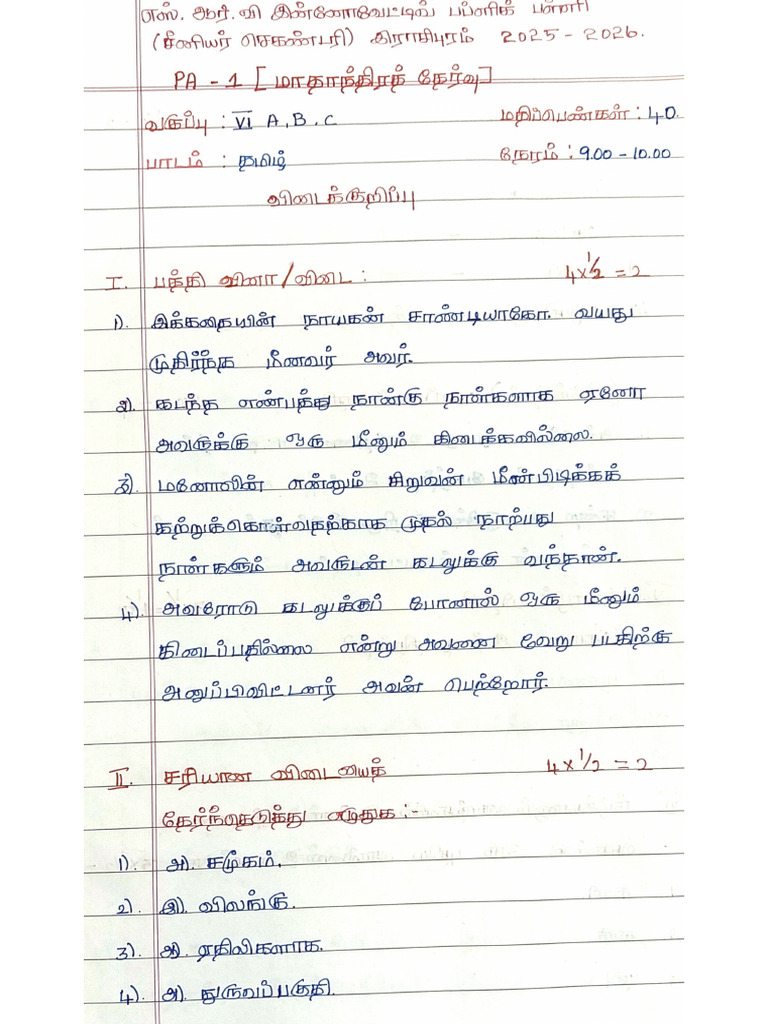 எஸ். ஆர். வி இன்னோவேட்டிவ் பப்ளிக் பள்ளி
(சீனியர் செகண்டரி) இராசிபுரம் 2025 - 2026.
PA - 1 [மாதாந்திரத் தேர்வு]
வகுப்பு : VI A, B, C மதிப்பெண்கள் : 40.
பாடம் : தமிழ் நேரம் : 9.00 - 10.00
விடைக்குறிப்பு
I. பத்தி வினா / விடை : 4 x 1/2 = 2
1). இக்கதையின் நாயகன் சாண்டியாகோ. வயது
முதிர்ந்த மீனவர் அவர்.
2). கடந்த எண்பத்து நான்கு நாள்களாக ஏனோ
அவருக்கு ஒரு மீனும் கிடைக்கவில்லை.
3). மனோலின் என்னும் சிறுவன் மீன்பிடிக்கக்
கற்றுக்கொள்வதற்காக முதல் நாற்பது
நாள்களும் அவருடன் கடலுக்கு வந்தான்.
4). அவரோடு கடலுக்குப் போனால் ஒரு மீனும்
கிடைப்பதில்லை என்று அவனை வேறு படகிற்கு
அனுப்பிவிட்டனர் அவன் பெற்றோர்.
II. சரியான விடையைத் 4 x 1/2 = 2
தேர்ந்தெடுத்து எழுதுக :-
1). அ). சமூகம்.
2). இ). விலங்கு.
3). ஆ). ஏதிலிகளாக.
4). அ). துருவப்பகுதி.